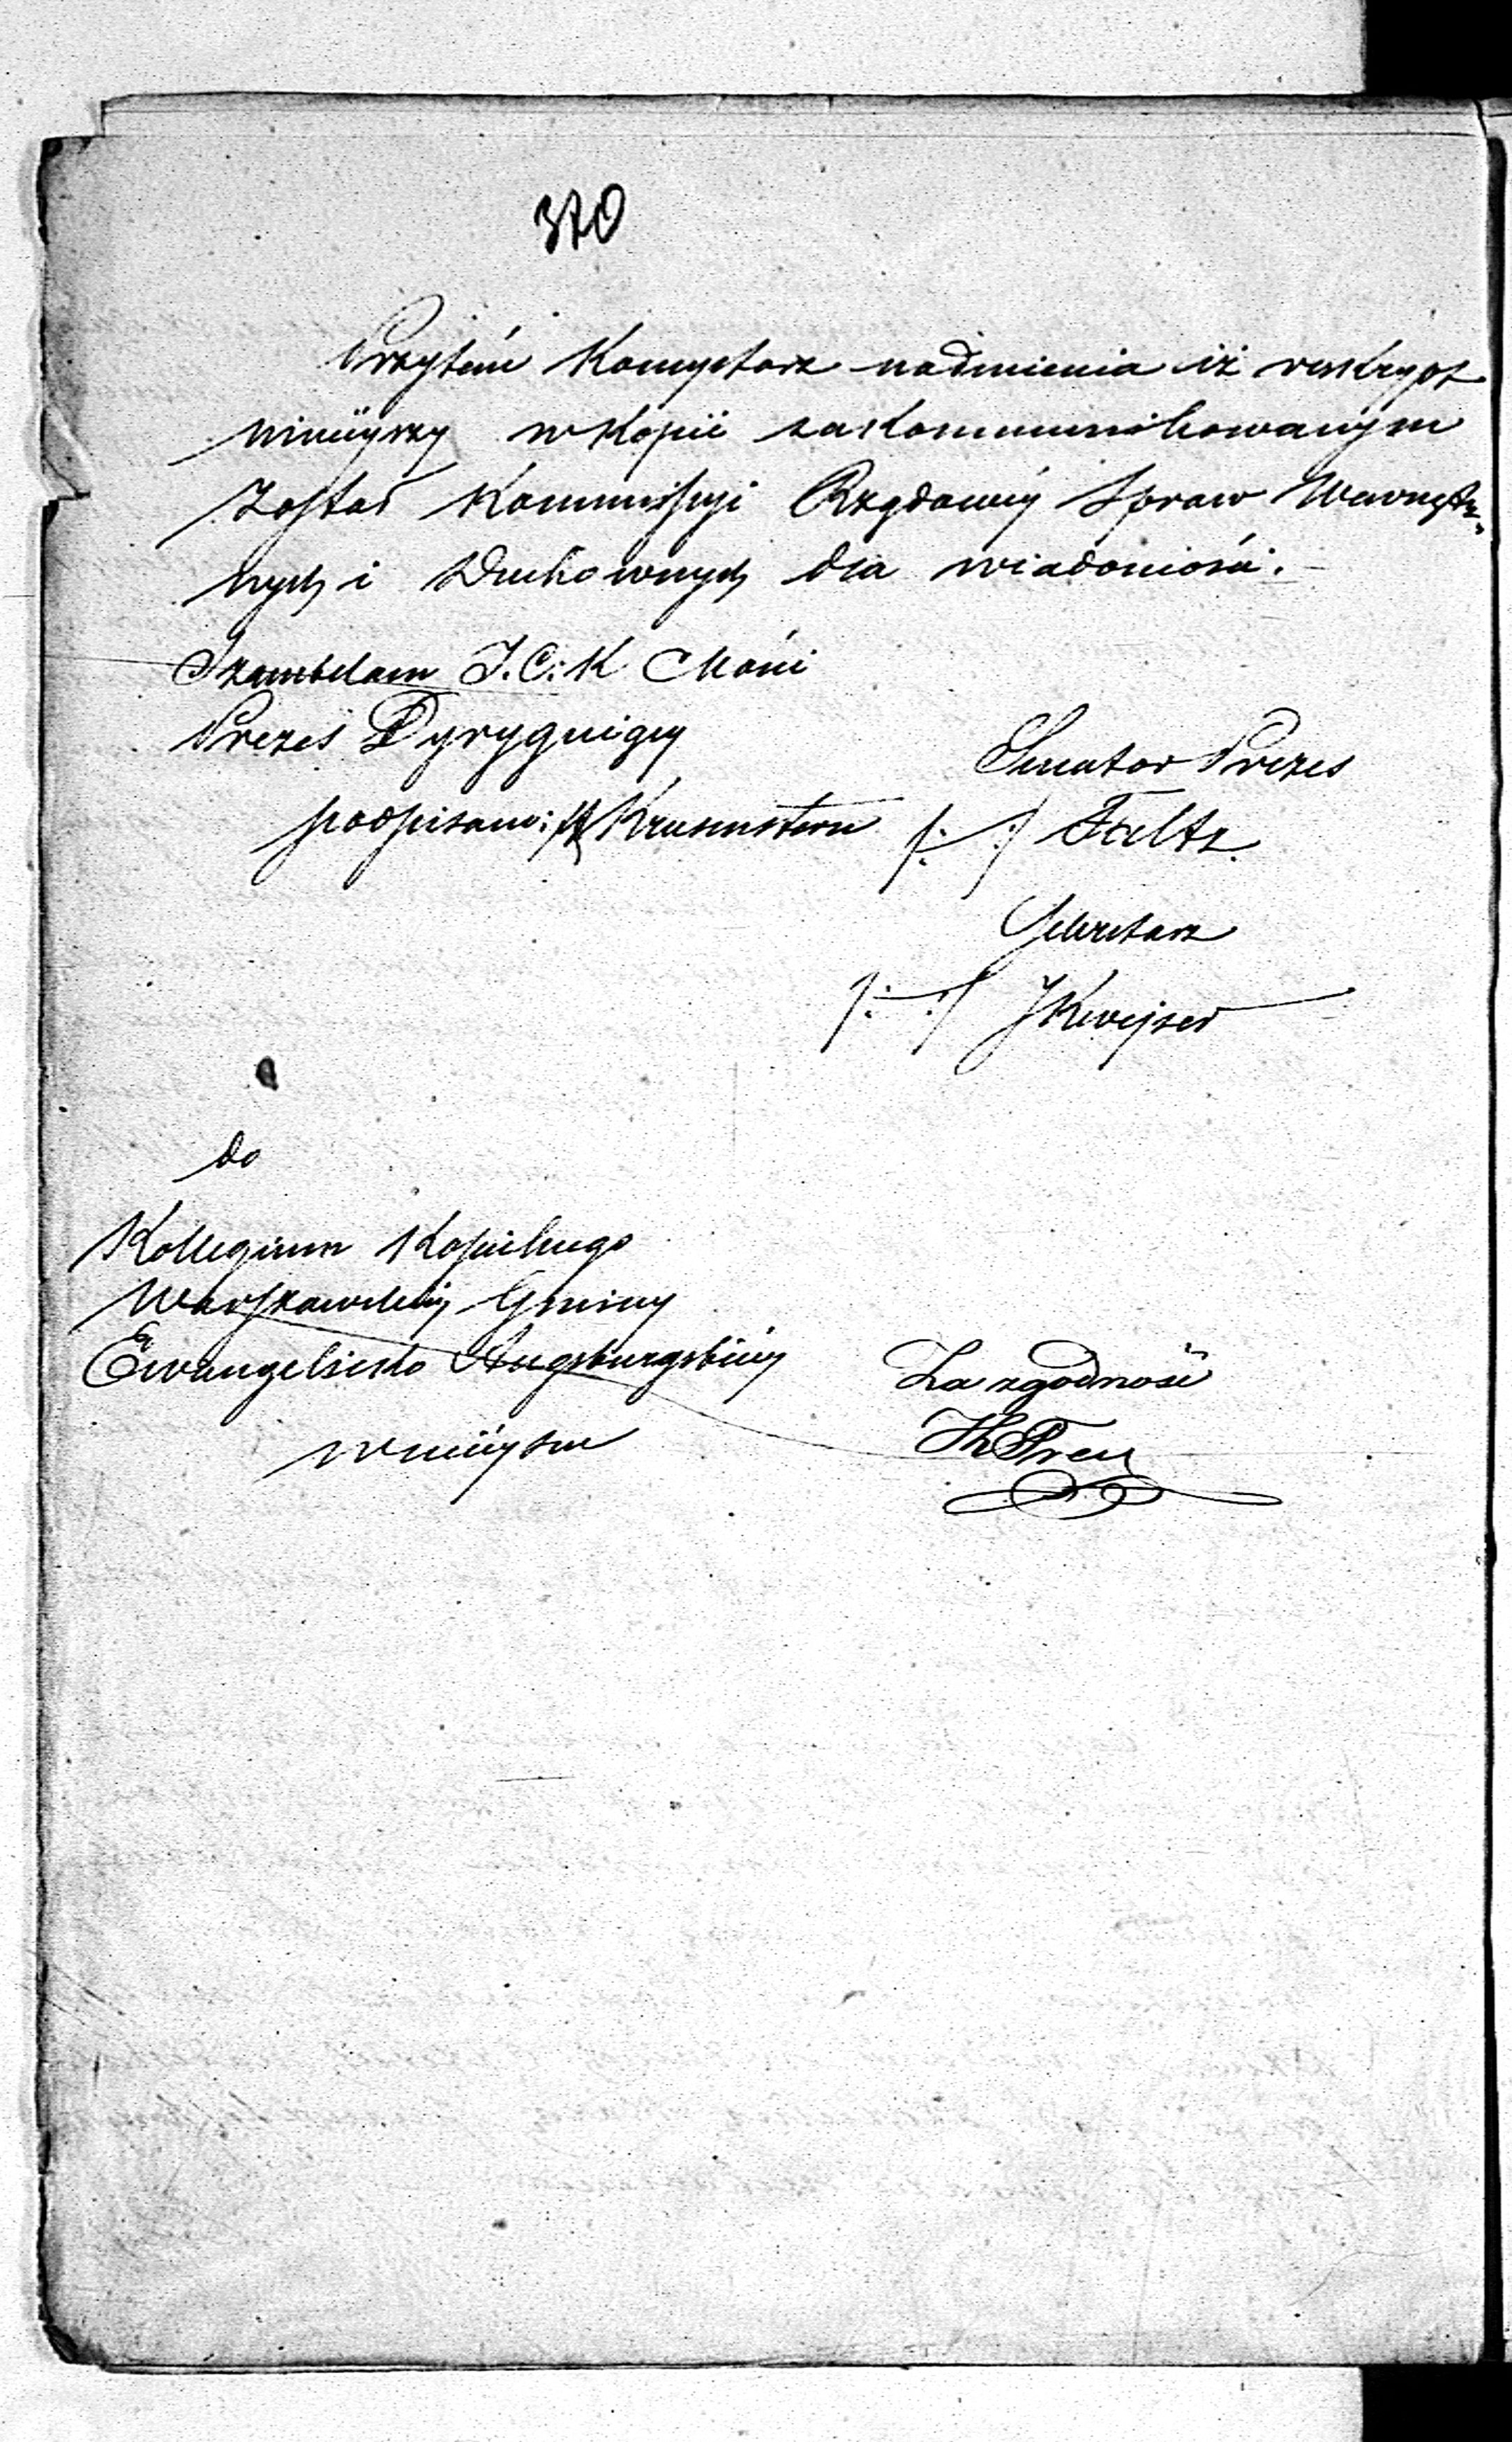 370
Przytém Konsystorz nadmienia iż reskrypt
ninieyszy w kopii zakommunikowanym
został Kommissyi Rządowéy Spraw Wewnętrz„
nych i Duchownych dla wiadomości.
Szambelan J. C: K Mości
Prezes Dyryguiący
podpisano: Krusenstern
Senator Prezes
/: :/ Faltz.
Sekretarz
/: :/ J Kwejser
do
Kollegium Kościelnego
Warszawskiéy Gminy
Ewangelicko Augsburgskiéy
w mieyscu
Za zgodność